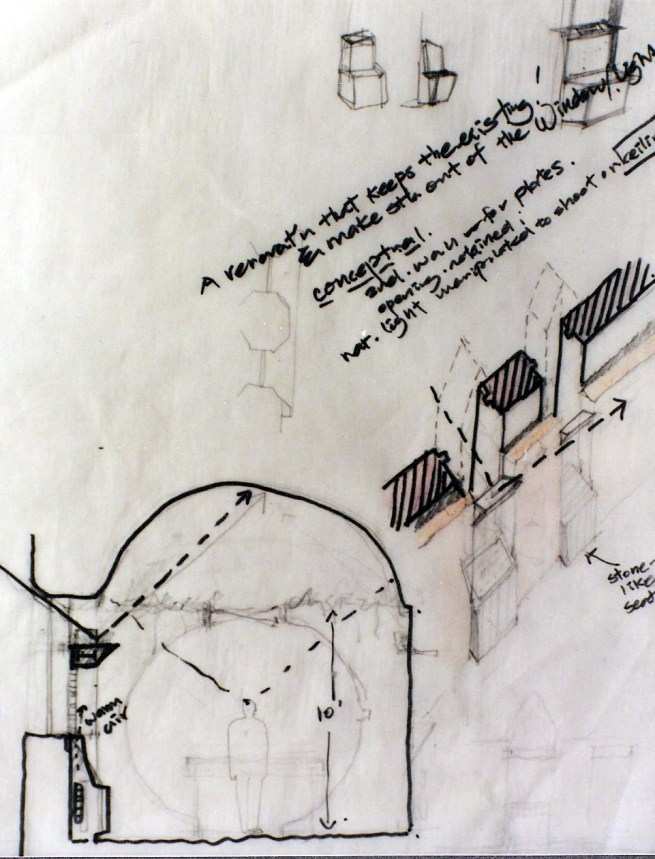 A renovat'n that keeps the existing!
& make sth out of the Window/Light
conceptual.
and. wall for plates.
opening. retained!
nat. light manipulated to shoot on
stone-
like
seat
warm
air
10'